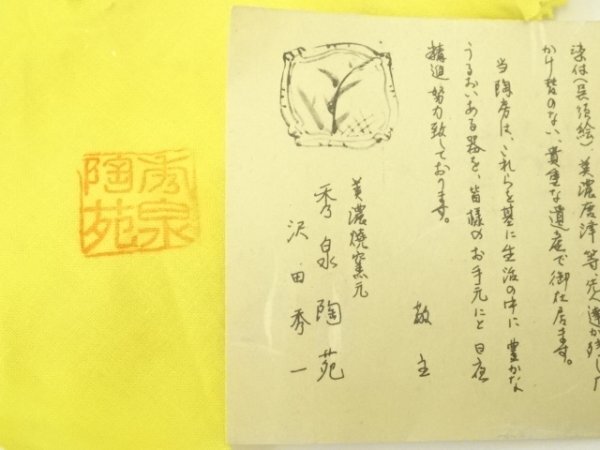 染付(呉須絵)、美濃唐津等、先人達が残した
かけ替のない、貴重な遺産で御在居ます。
当陶房は、これらを基に生活の中に豊かな
うるおいある器を、皆様のお手元にと日夜
精進努力致しております。
敬主
美濃焼窯元
秀泉陶苑
沢田秀一
秀泉
陶苑